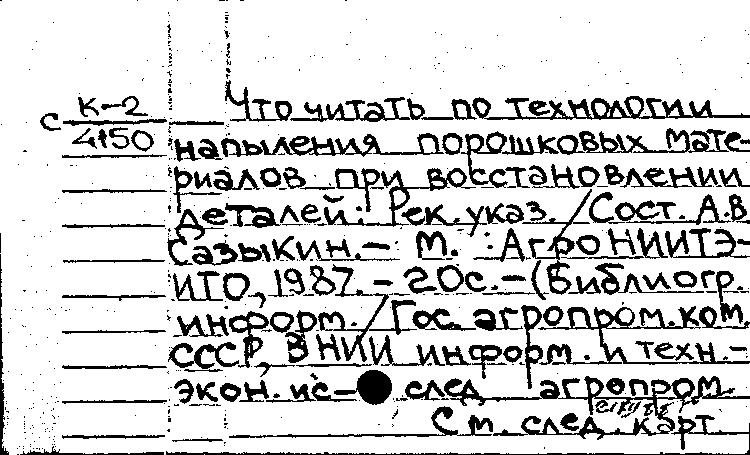 Что читать по технологии
с К-2
4150
напыления порошковых мате-
риалов при восстановлении
деталей: Рек. указ. / Сост. А.В.
Сазыкин. - М. : АгроНИИТЭ-
ИТО, 1987. - 20с. - (Библиогр.
информ. / Гос. агропром. ком.
СССР, ВНИИ информ. и техн.-
экон. ис- след агропром.
См. след. карт.